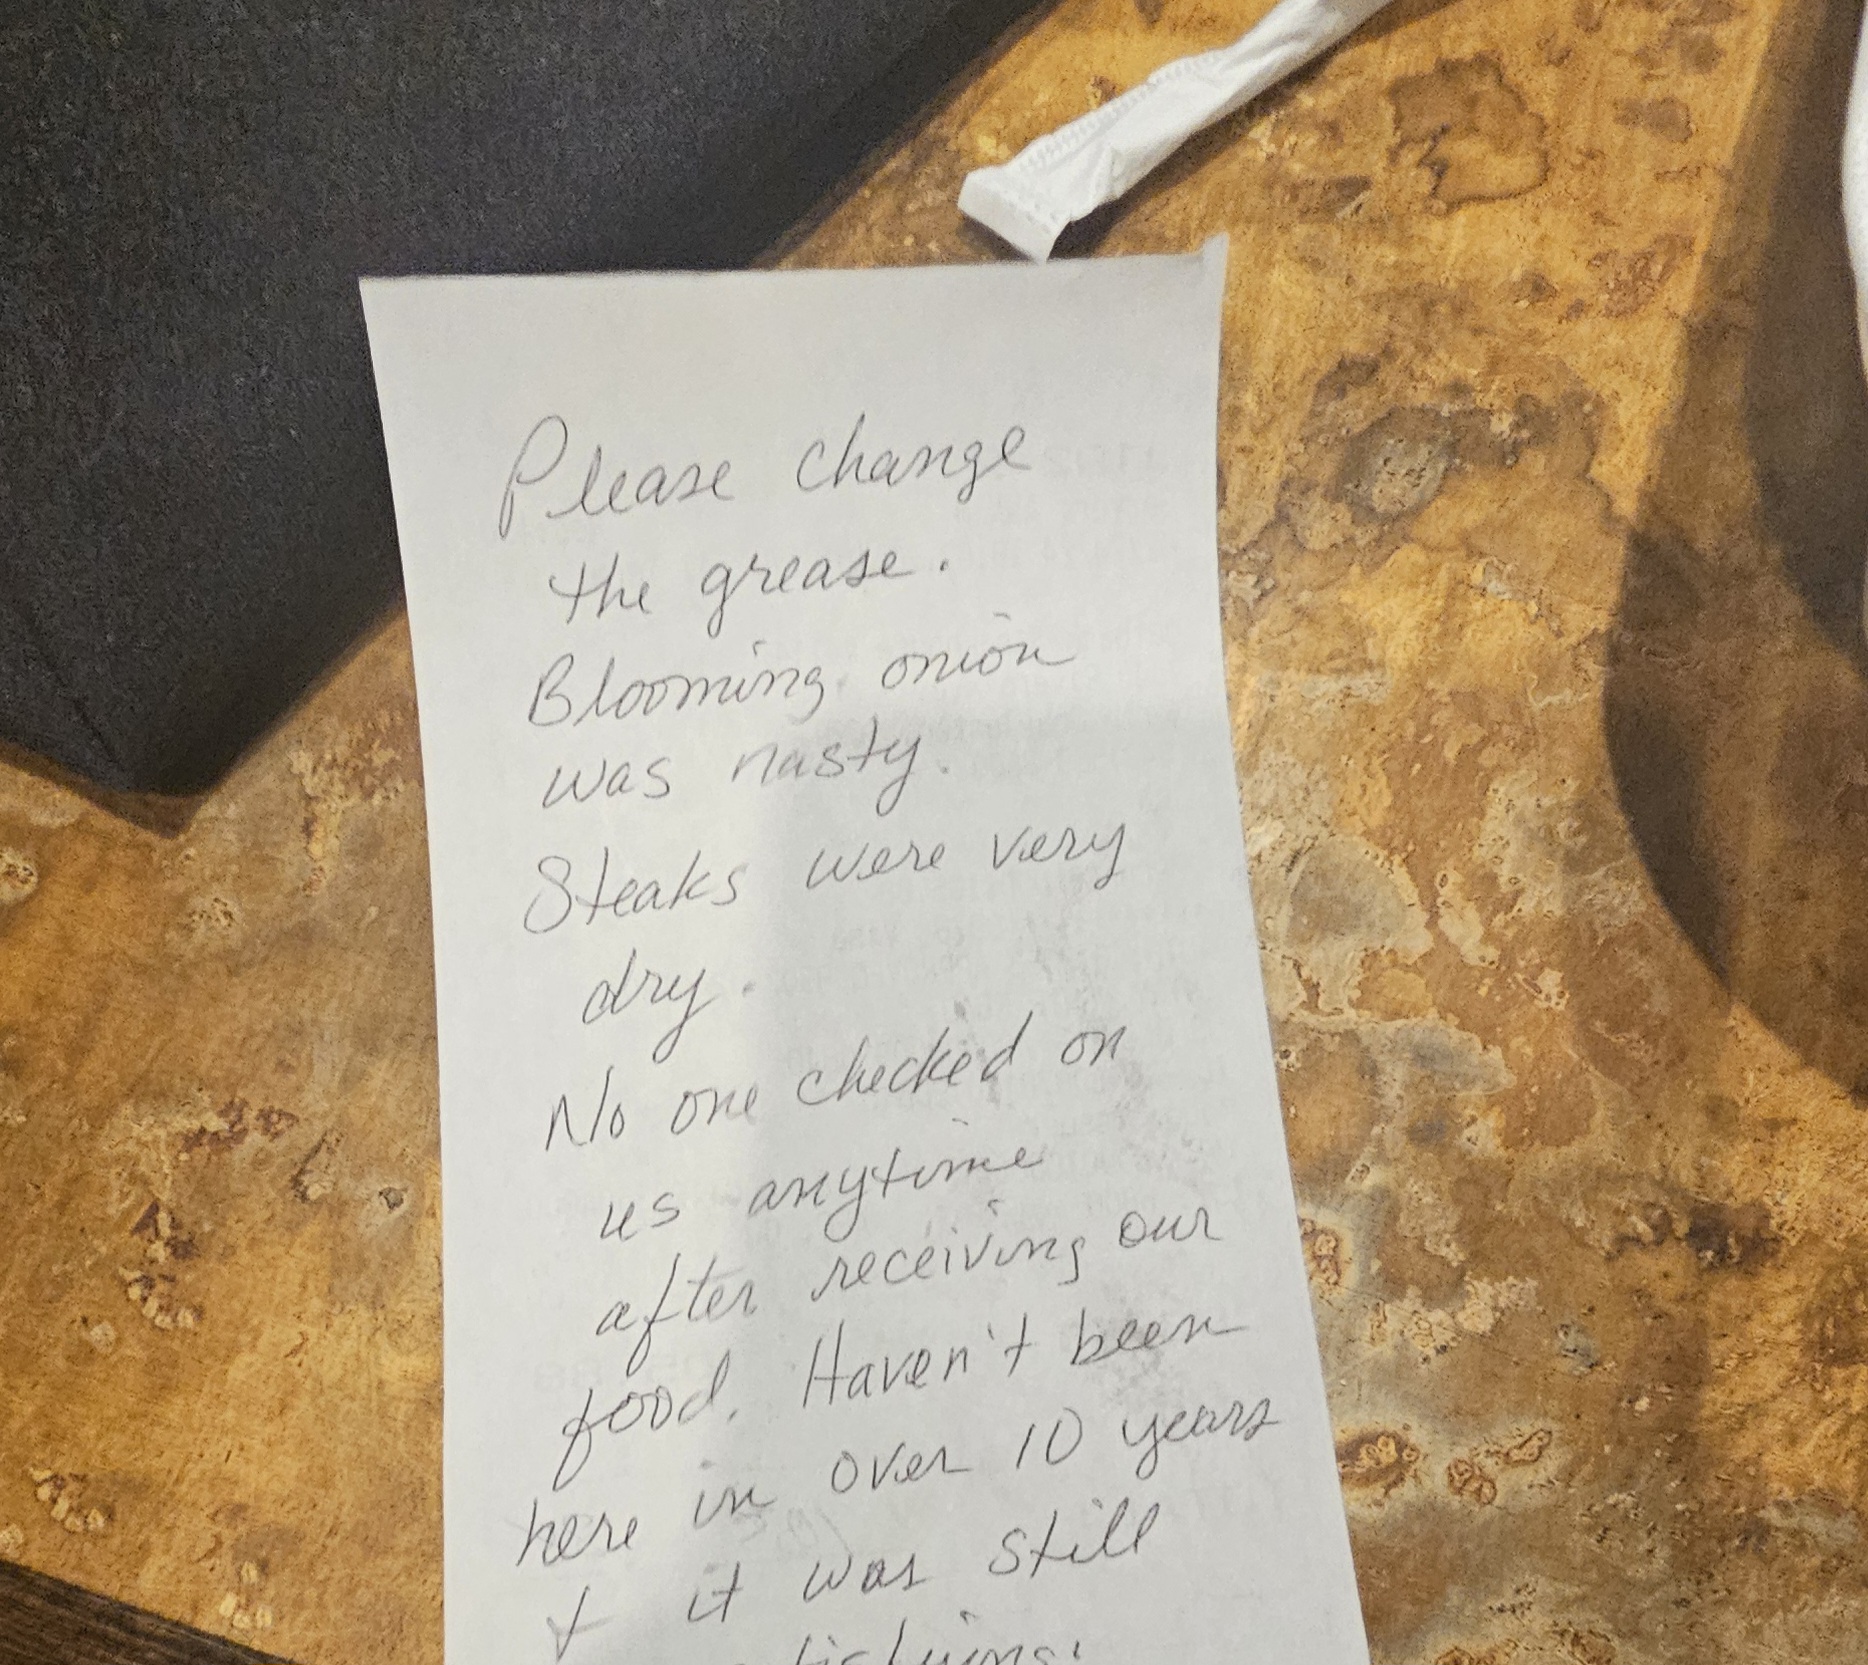 Please change
the grease.
Blooming onion
was nasty.
Steaks were very
dry.
No one checked on
us anytime
after receiving our
food. Haven't been
here in over 10 years
+ it was still